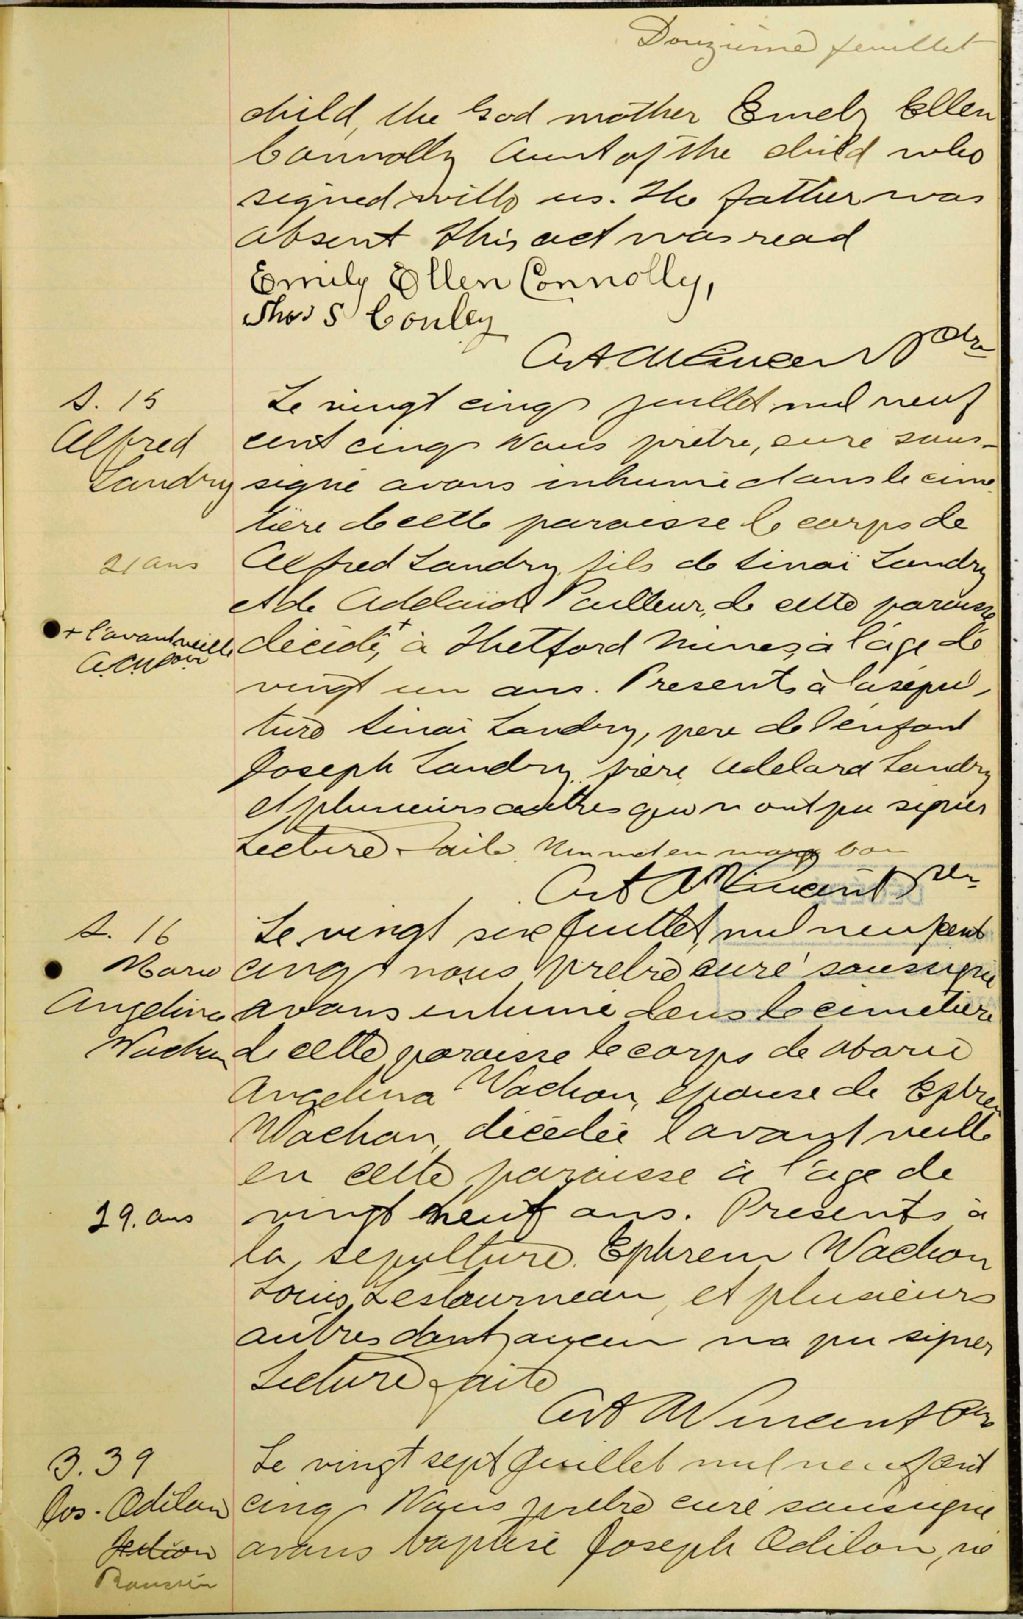 Douzième feuillet
child, the God mother Emely Ellen
Connolly Aunt of the child who
signed with us. The father was
absent this act was read
Emily Ellen Connolly,
Thos S Conley
Art A Vincent Ptre
S. 15
Alfred
Landry
21 ans
+ l'avant veille
Le vingt cinq juillet mil neuf
cent cinq Nous prêtre, curé sous-
signé avons inhumé dans le cime
tière de cette paroisse le corps de
Alfred Landry fils de Sinaï Landry
et de Adelaïde Pailleur, de cette paroisse
décédé, + à Thetford Mines, à l'âge de
vingt un ans. Presents à la sépul-
ture Sinaï Landry, père de l'enfant
Joseph Landry, frère, Adelard Landry
et plusieurs autres qui n'ont pu signer
Lecture faite. en marge bon
Art A Vincent Ptre
S. 16
Marie
Angelina
Wachon
29. ans
Le vingt six Juillet mil neuf cent
cinq nous prêtre curé soussigné
avons inhumé dans le cimetière
de cette paroisse le corps de Marie
Angelina Wachon, épouse de Ephrem
Wachon, décédée l'avant veille
en cette paroisse à l'âge de
vingt neuf ans. Presents à
la sepulture. Ephrem Wachon
Louis Lestourneau, et plusieurs
autres dont aucun na pu signer
Lecture faite
Art A Vincent Ptre
B. 39
Jos. Odilon
Roussin
Le vingt sept Juillet mil neuf cent
cinq Nous prêtre curé soussigné
avons baptisé Joseph Odilon, né